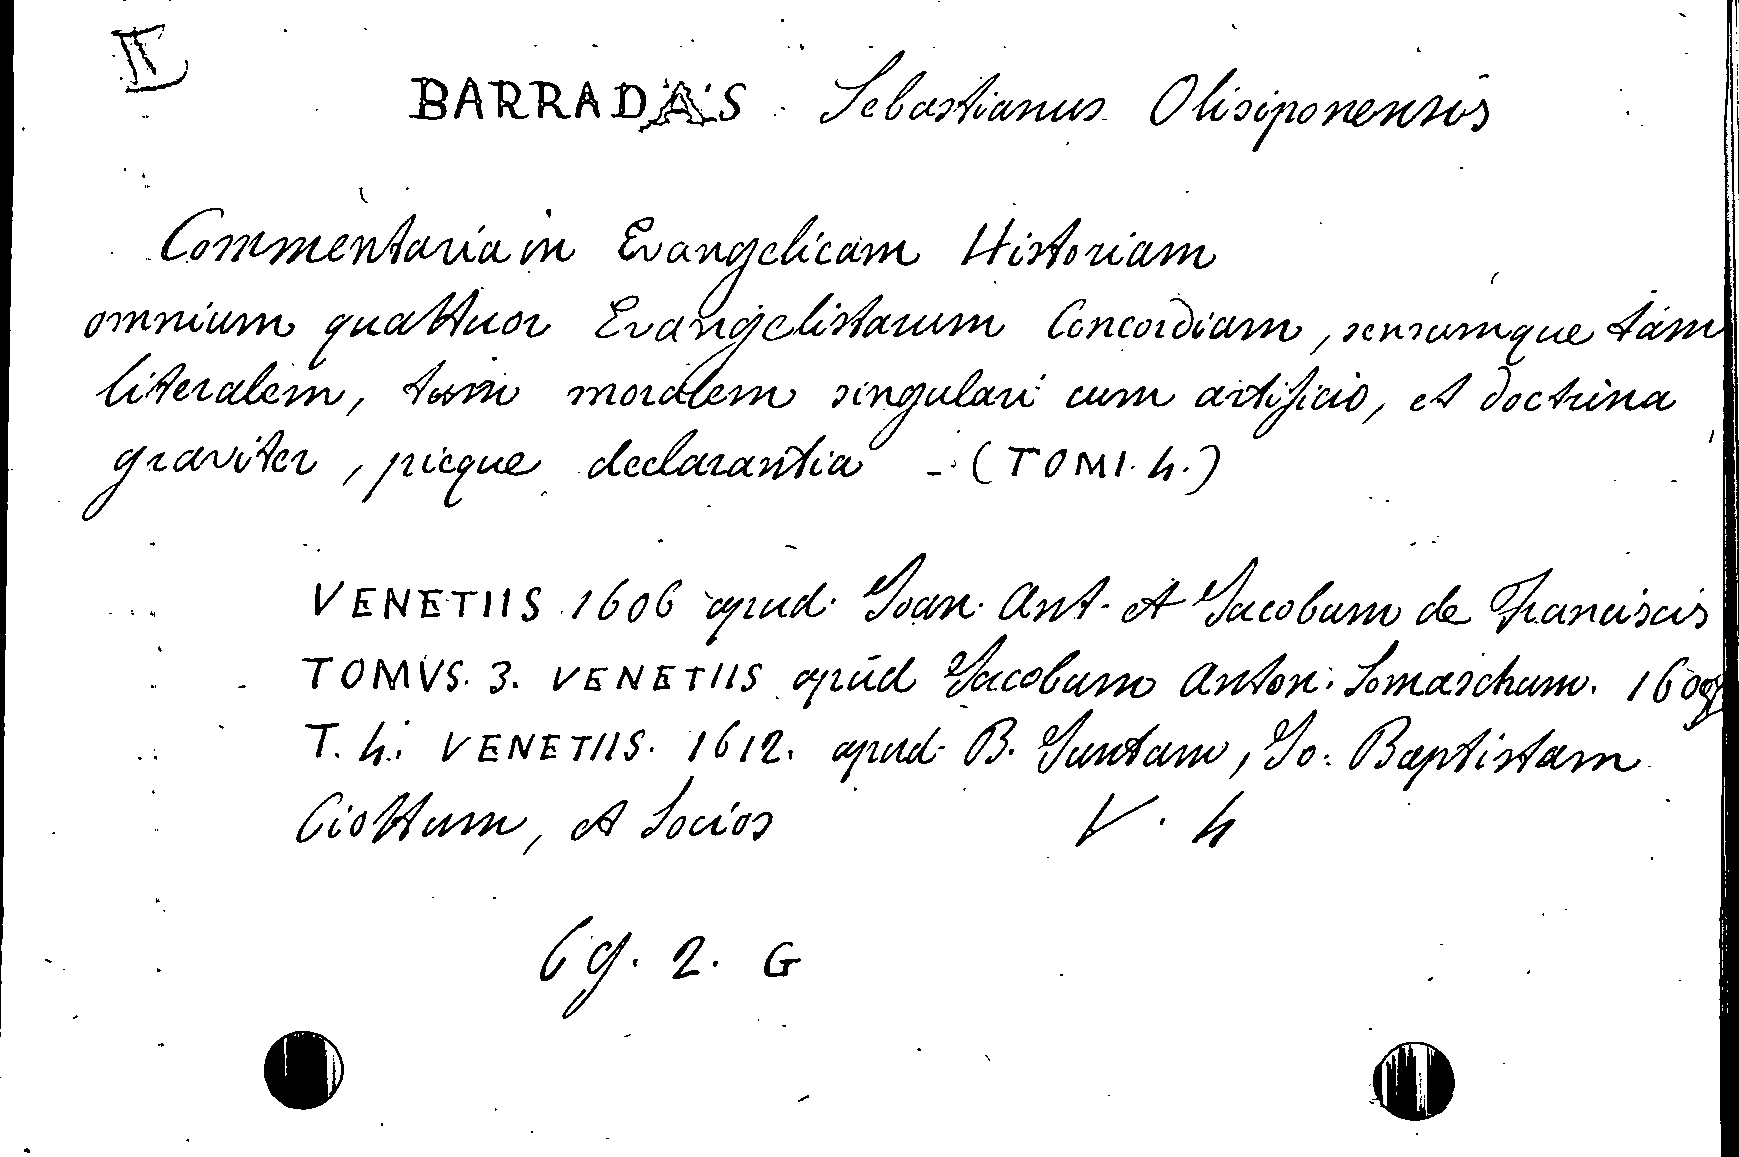 BARRADAS Sebastianus Olisiponensis
Commentaria in Evangelicam Historiam
omnium quattuor Evangelistarum Concordiam, sensumque tam
literalem, tam moralem singulari cum artificio, et doctrina
graviter, pieque declarantia - (TOMI. 4.)
VENETIIS 1606 apud Ioan. Ant. et Iacobum de Franciscis
TOMVS. 3. VENETIIS apud Iacobum Anton. Somascham. 1609
T. 4. VENETIIS. 1612. apud B. Iuntam, Io. Baptistam
Ciottum, et Socios V. 4
69. 2. G